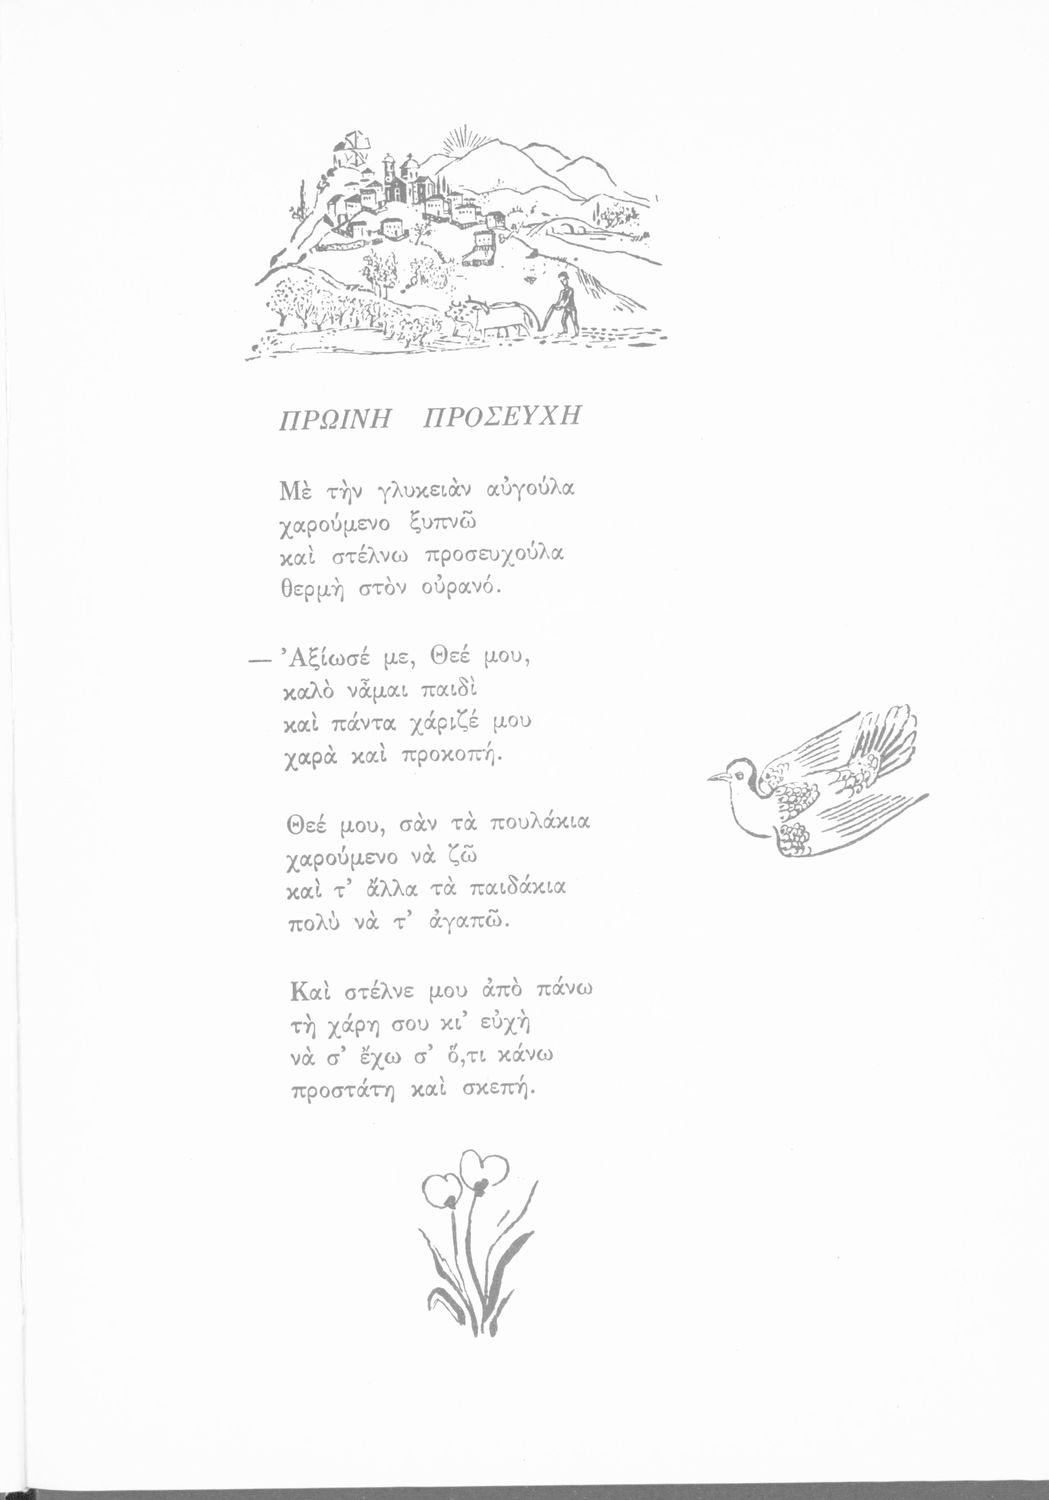 ΠΡΩΙΝΗ ΠΡΟΣΕΥΧΗ
Μὲ τὴν γλυκειὰν αὐγούλα
χαρούμενο ξυπνῶ
καὶ στέλνω προσευχούλα
θερμὴ στὸν οὐρανό.
— Ἀξίωσέ με, Θεέ μου,
καλὸ νἆμαι παιδὶ
καὶ πάντα χάριζέ μου
χαρὰ καὶ προκοπή.
Θεέ μου, σὰν τὰ πουλάκια
χαρούμενο νὰ ζῶ
καὶ τ’ ἄλλα τὰ παιδάκια
πολὺ νὰ τ’ ἀγαπῶ.
Καὶ στέλνε μου ἀπὸ πάνω
τὴ χάρη σου κι’ εὐχὴ
νὰ σ’ ἔχω σ’ ὅ,τι κάνω
προστάτη καὶ σκεπή.